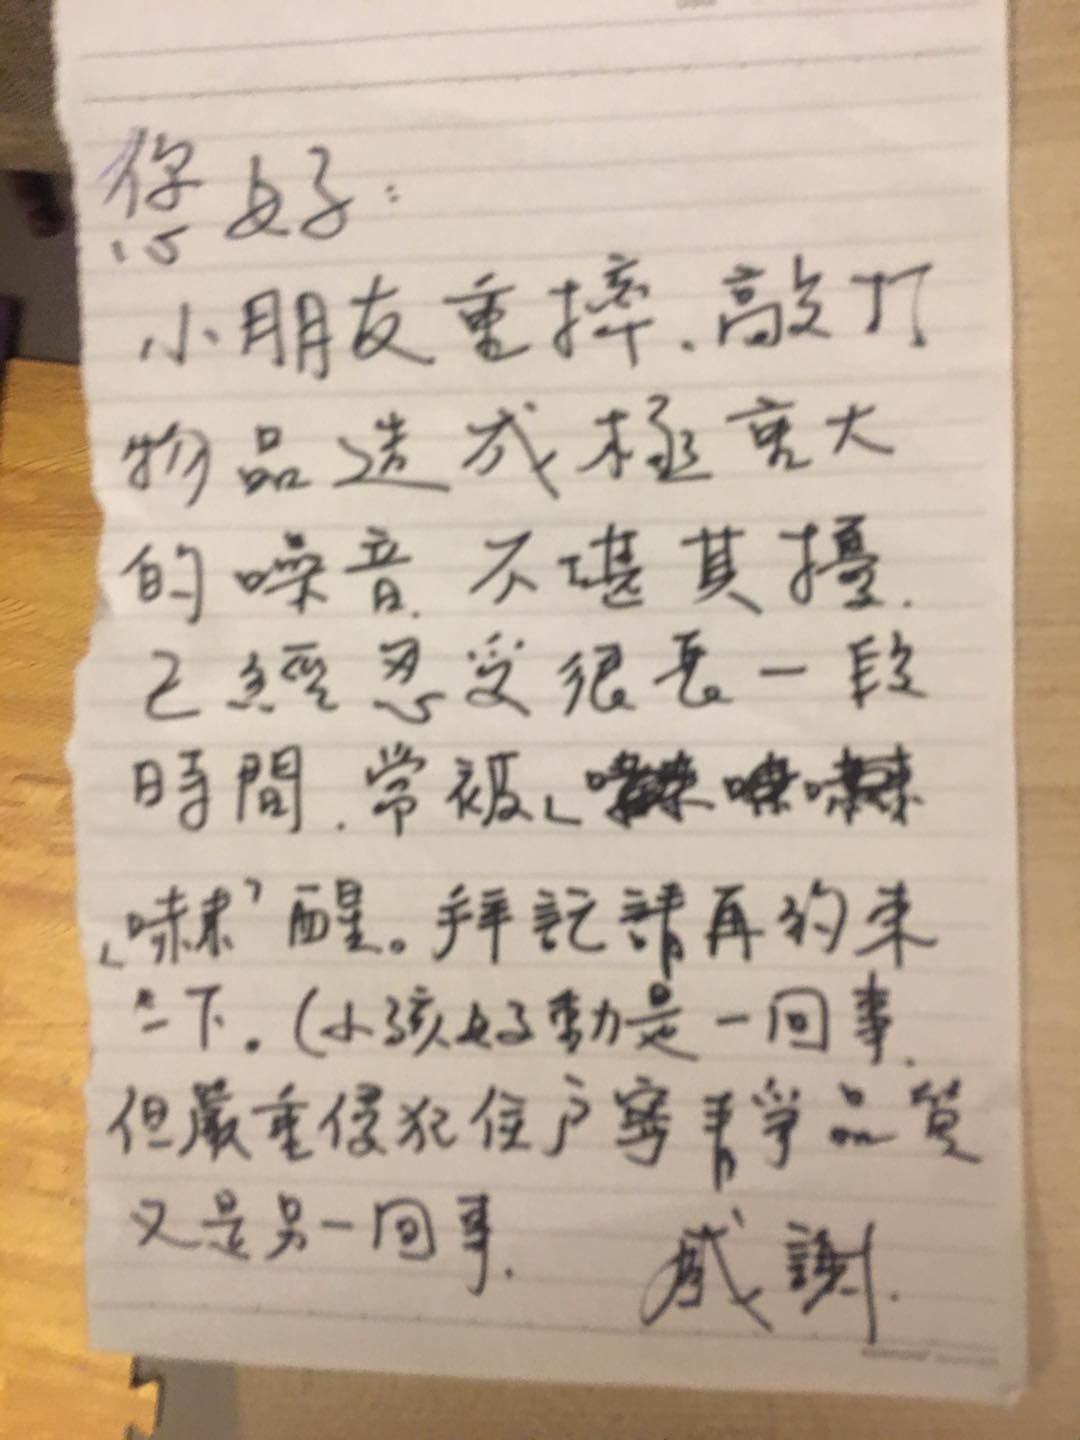 您好：
小朋友重摔、敲打
物品造成極高大
的噪音，不堪其擾，
已經忍受很長一段
時間，常被
「嚇」醒。拜託請再約束
一下。(小孩好動是一回事，
但嚴重侵犯住戶寧靜品質
又是另一回事，
感謝.